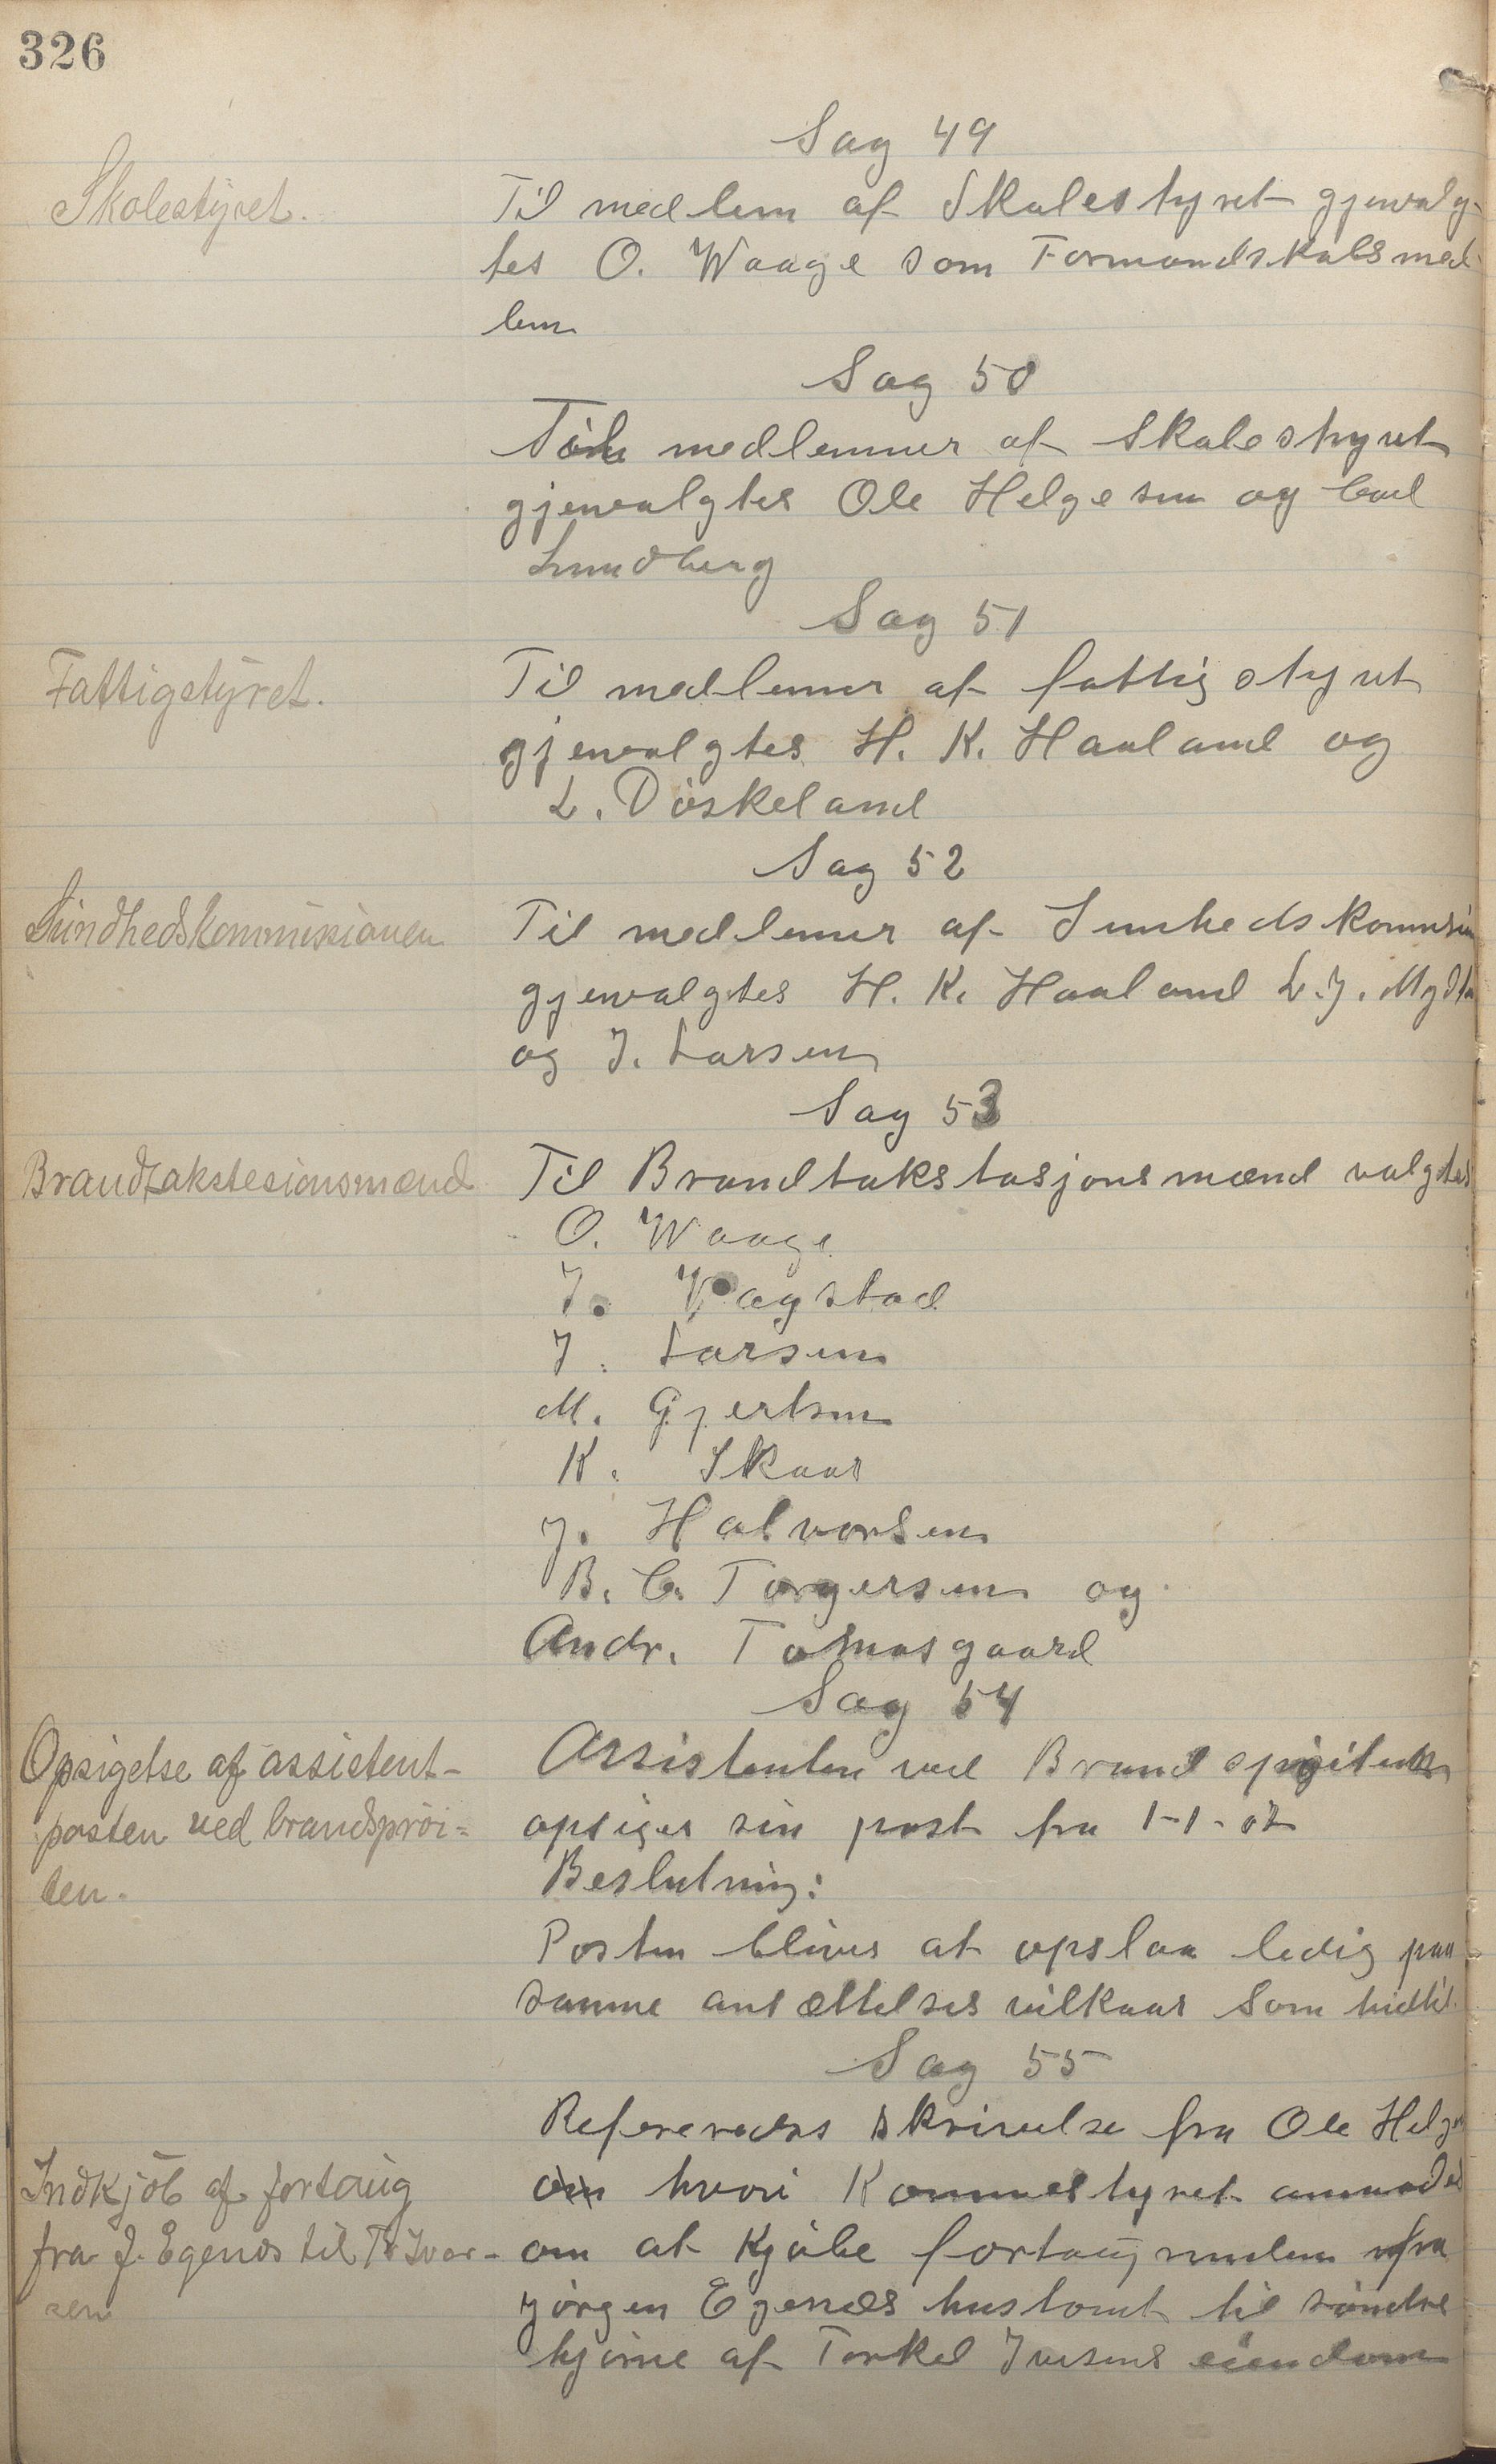 326
Sag 49
Skolestyret.
Til medlem af Skolestyret gjenvalg-
tes O. Waage som Formandskabsmed-
lem
Sag 50
Til medlemmer af Skolestyret
gjenvalgtes Ole Helgesen og Carl
Lundberg
Sag 51
Fattigstyret.
Til medlemer af fattigstyret
gjenvalgtes H. K. Haaland og
L. Döskeland
Sag 52
Sundhedskommisionen
Til medlemer af Sunhedskommisin
gjenvalgtes H. K. Haaland L. J. Mydla
og J. Larsen
Sag 53
Brandtakstesionsmænd
Til Brandtakstasjonsmænd valgtes
O. Waage
J. Vagstad
J. Larsen
M. Gjertsen
K. Skaar
J. Halvorsen
B. C. Torgersen og
Andr. Tomasgaard
Sag 54
Opsigelse af assistent-
posten ved brandsprøi-
ten.
Assistenten ved Brandspröiten
opsiger sin post fra 1-1-02
Beslutning:
Posten blives at opslaa ledig paa
samme ansættelses vilkaar som hidtil.
Sag 55
Indkjöb af fortaug
fra J. Egenæs til T. Ivar-
sen
Refereredes skrivelse fra Ole Helges
om hvori Kommestyret anmodes
om at Kjöbe fortaug runden fra
Jörgen Egenæs hustomt til söndre
hjörne af Torkel Iversens eiendom